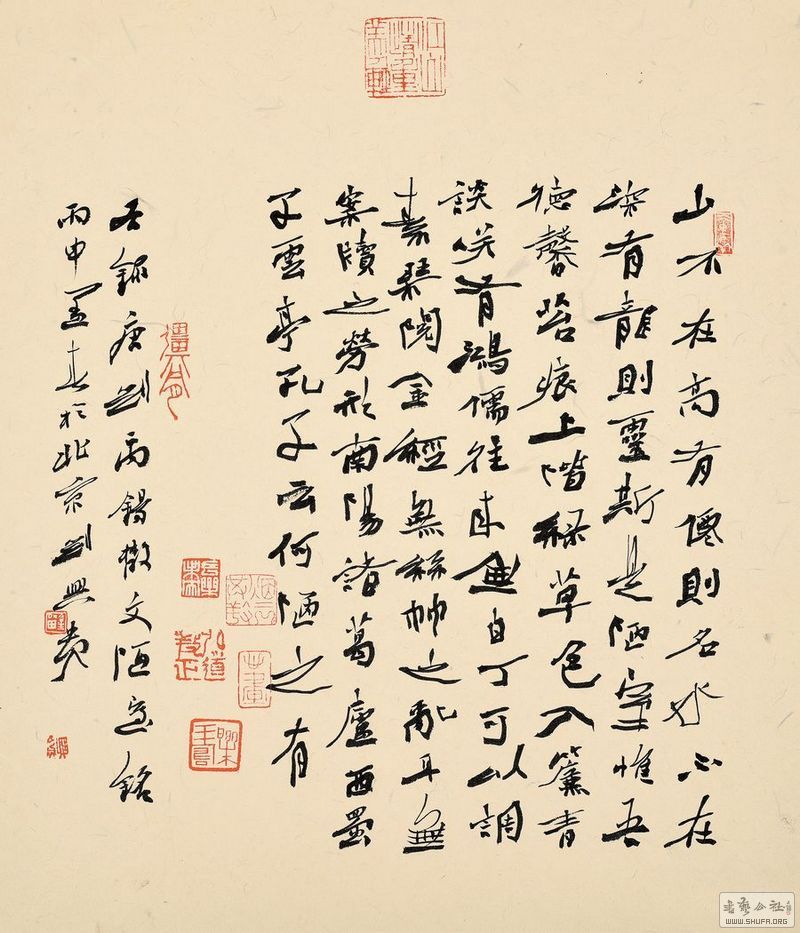 山不在高有僊則名水不在
深有龍則靈斯是陋室惟吾
德馨苔痕上階綠草色入簾青
談笑有鴻儒往來無白丁可以調
素琴閱金經無絲竹之亂耳無
案牘之勞形南陽諸葛廬西蜀
子雲亭孔子云何陋之有
右錄唐劉禹錫散文陋室銘
丙申孟春於北京劉興
書藝公社
WWW.SHUFA.ORG